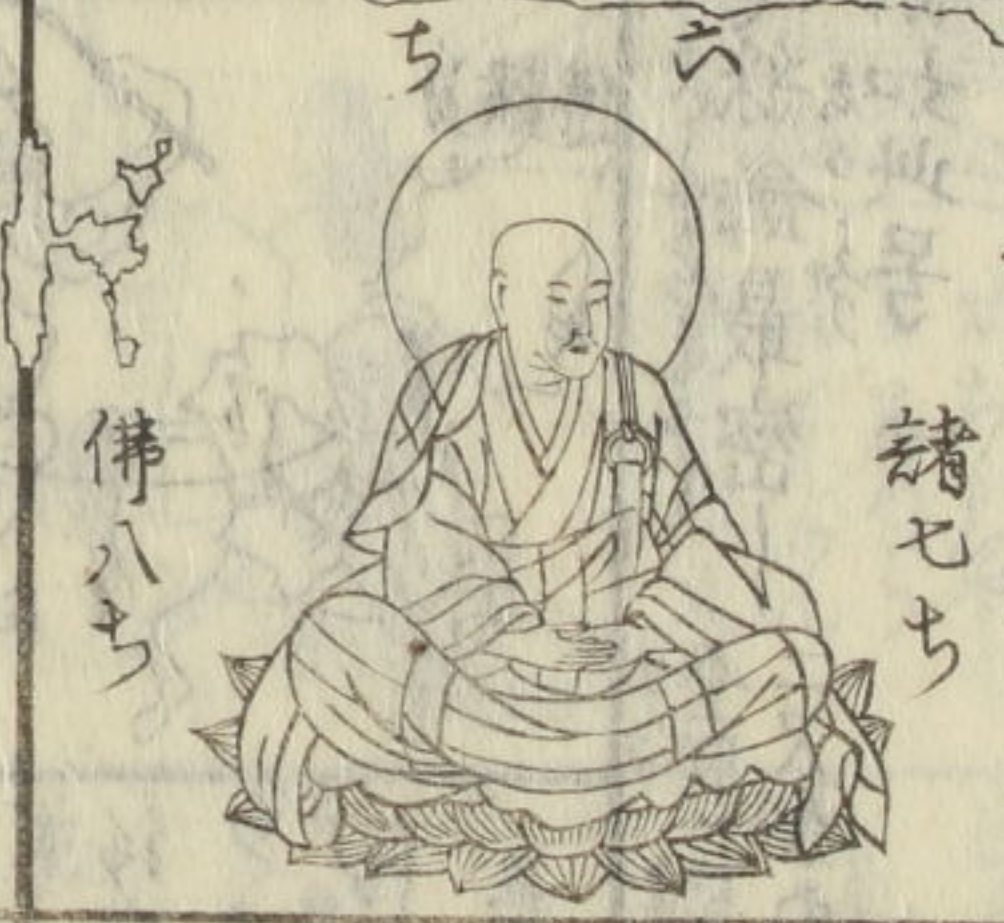 六
ち
諸七ち
佛八ち